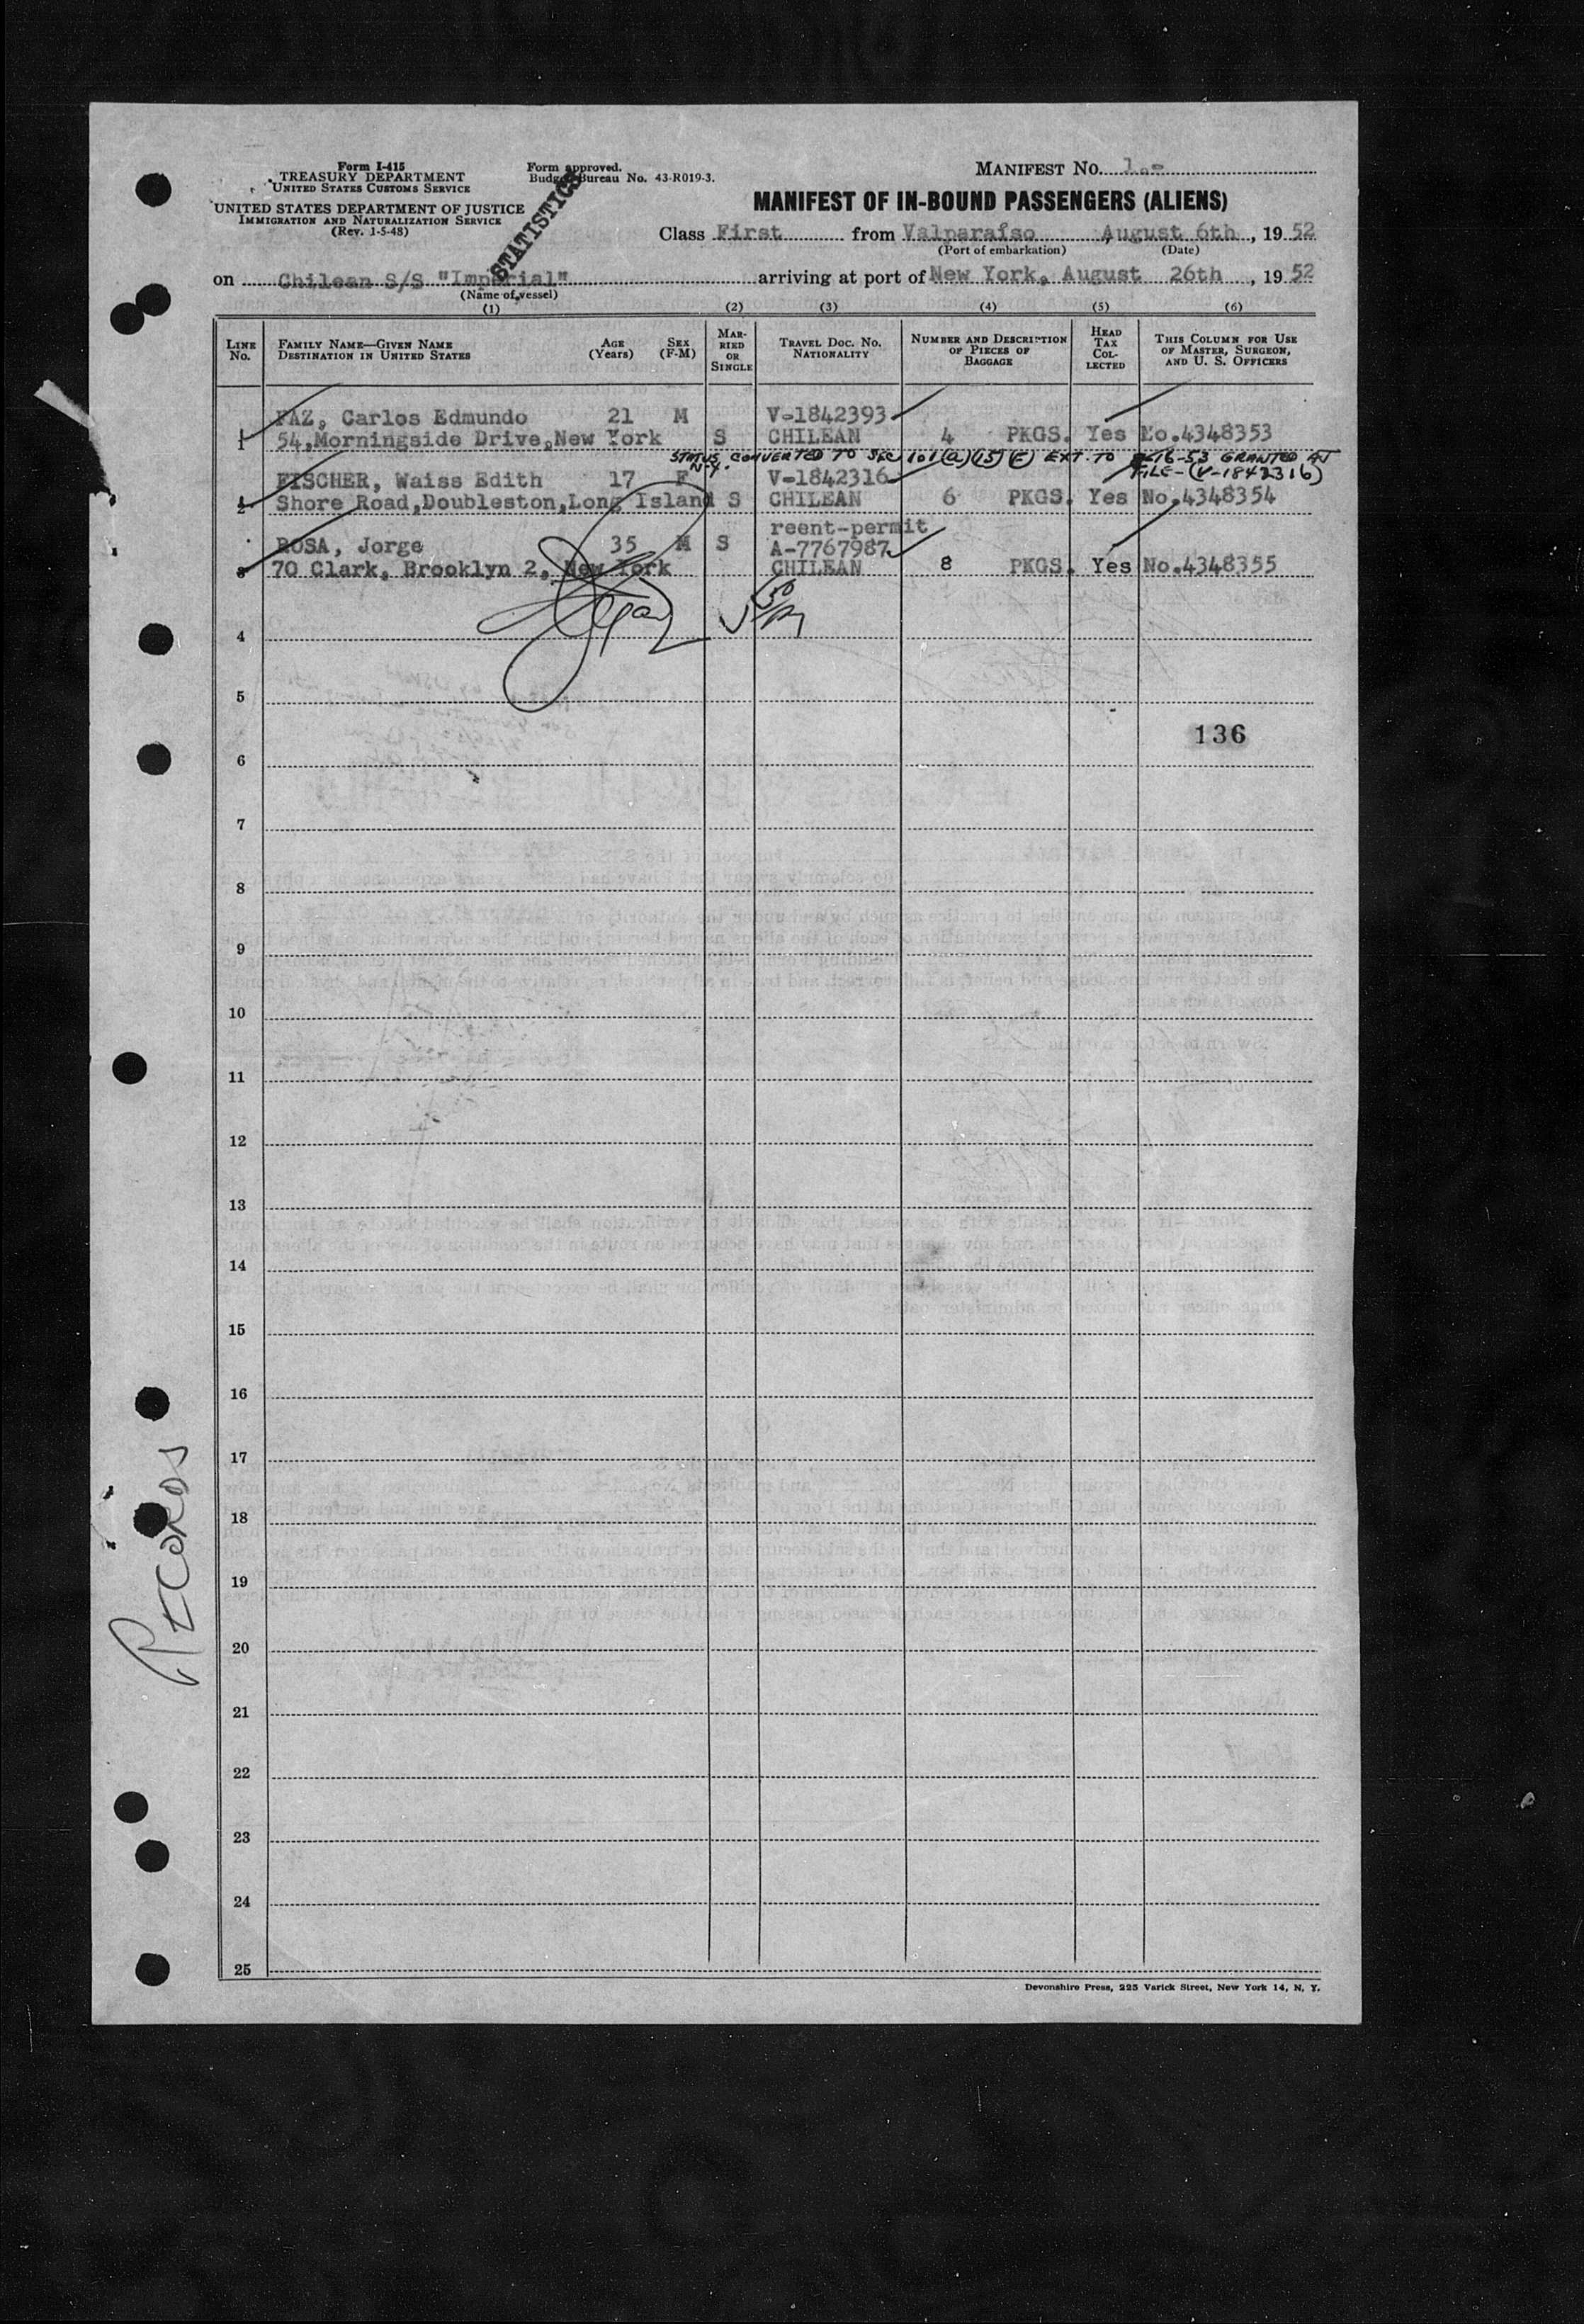 Form I-415
TREASURY DEPARTMENT
UNITED STATES CUSTOMS SERVICE
UNITED STATES DEPARTMENT OF JUSTICE
IMMIGRATION AND NATURALIZATION SERVICE
(Rev. 1-5-48)
Form approved.
Budget Bureau No. 43-R019-3.
STATISTICS
MANIFEST NO. 1.-
MANIFEST OF IN-BOUND PASSENGERS (ALIENS)
Class First from Valparaíso, August 6th, 1952
(Port of embarkation) (Date)
on Chilean S/S "Imperial" arriving at port of New York, August 26th, 1952
(Name of vessel)
(1) (2) (3) (4) (5) (6)
LINE No. FAMILY NAME—GIVEN NAME DESTINATION IN UNITED STATES AGE (Years) SEX (F-M) MARRIED OR SINGLE TRAVEL DOC. NO. NATIONALITY NUMBER AND DESCRIPTION OF PIECES OF BAGGAGE HEAD TAX COLLECTED THIS COLUMN FOR USE OF MASTER, SURGEON, AND U. S. OFFICERS
FAZ, Carlos Edmundo 21 M V-1842393
1 54,Morningside Drive,New York S CHILEAN 4 PKGS. Yes No.4348353
STATUS CONVERTED TO SEC 101(a)(15)(F) EXT. TO 53 GRANTED AT
N.Y. FILE-(V-1842316)
FISCHER, Waiss Edith 17 F V-1842316
2 Shore Road,Doubleston,Long Island S CHILEAN 6 PKGS. Yes No.4348354
reent-permit
ROSA, Jorge 35 M S A-7767987
3 70 Clark, Brooklyn 2, New York CHILEAN 8 PKGS. Yes No.4348355
4
5
136
6
7
8
9
10
11
12
13
14
15
16
17
18
19
20
21
22
23
24
25
Devonshire Press, 225 Varick Street, New York 14, N. Y.